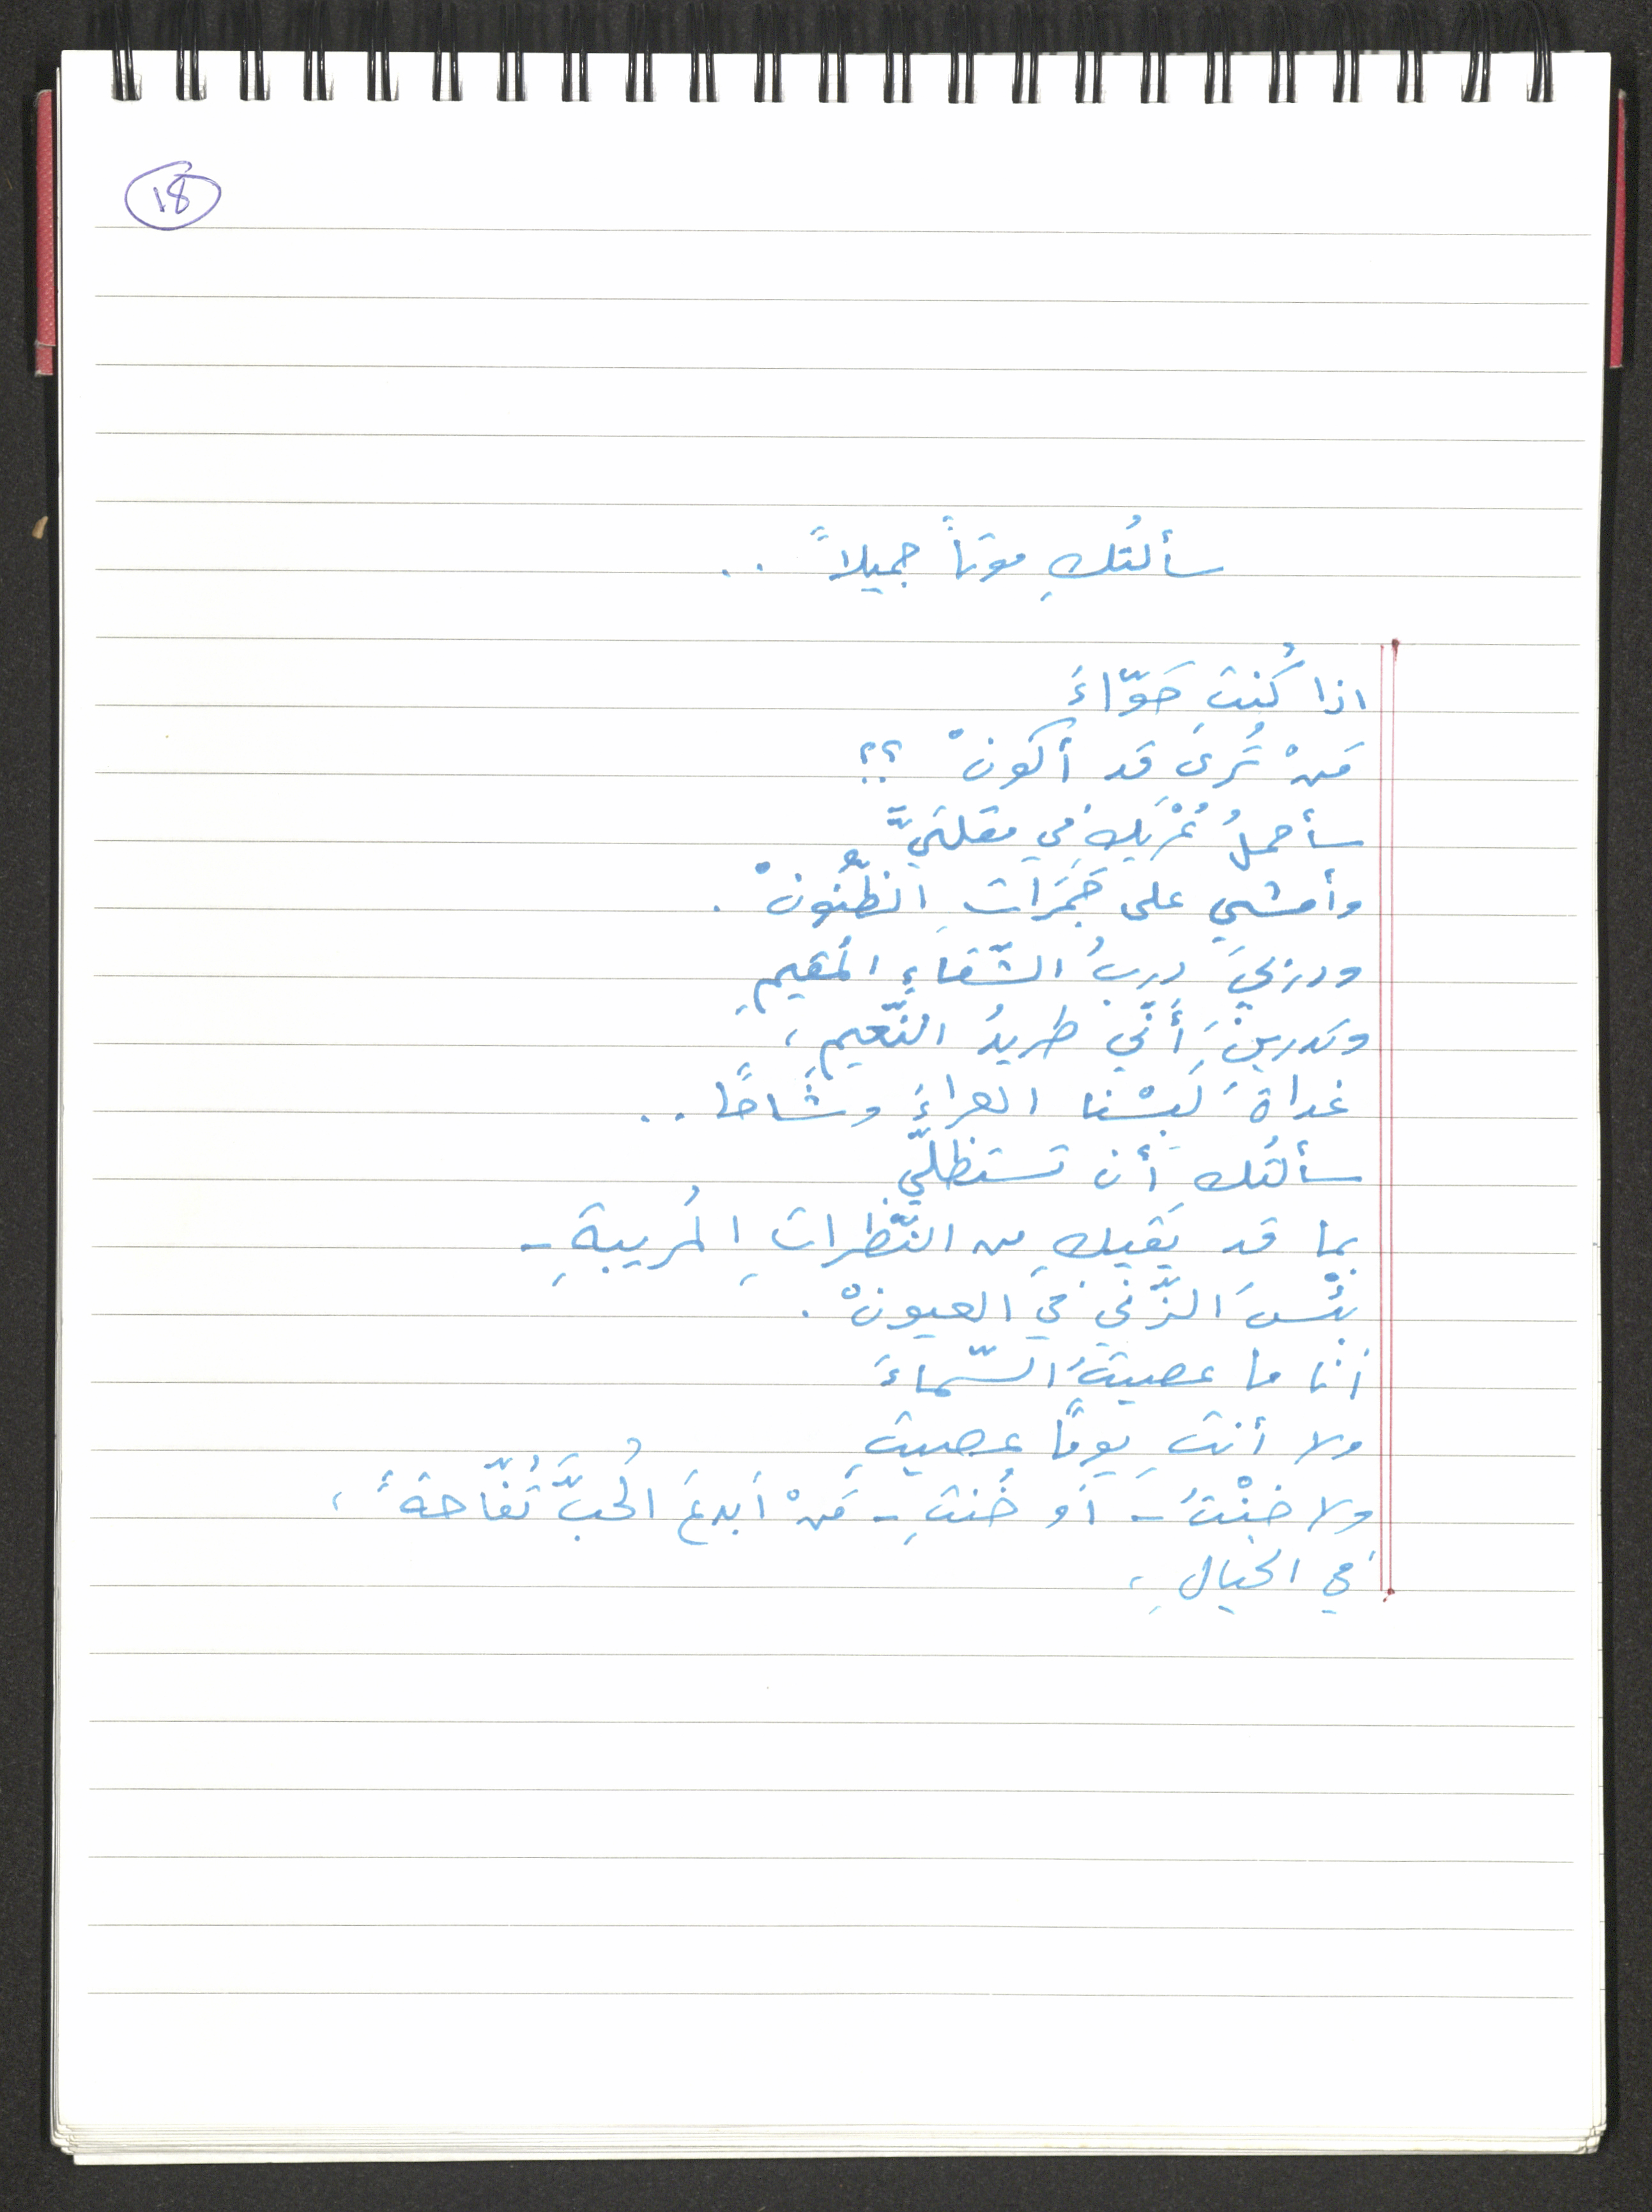 18
سألتُكِ موتاً جميلاً ..
اذا كُنتِ حَوّاءَ
مَنْ تُرىَ قد أكونْ ؟؟
سأحملُ عُرْيَكِ في مقلتَيَّ
وأمشي على جَمَرَاتِ الظُّنُونْ .
ودربيَ دربُ الشّقاءِ المُقيمِ
وتدرينَ أَنّي طريدُ النَّعيمِ،
غداةَ لَبسْنا العراءَ وشَاحًا ..
سألتُكِ أن تستظلّي
بما قد يَقيكِ من النَّظراتِ المُريبةِ -
بئْسَ الزّنى في العيونْ .
أنا ما عصيتُ السّماءَ
ولا أنتِ يومًا عصيتِ
ولا خنْتُ - أو خُنتِ - مَنْ أبدعَ الحُبَّ تُفّاحةً ،
في الخيالِ ،